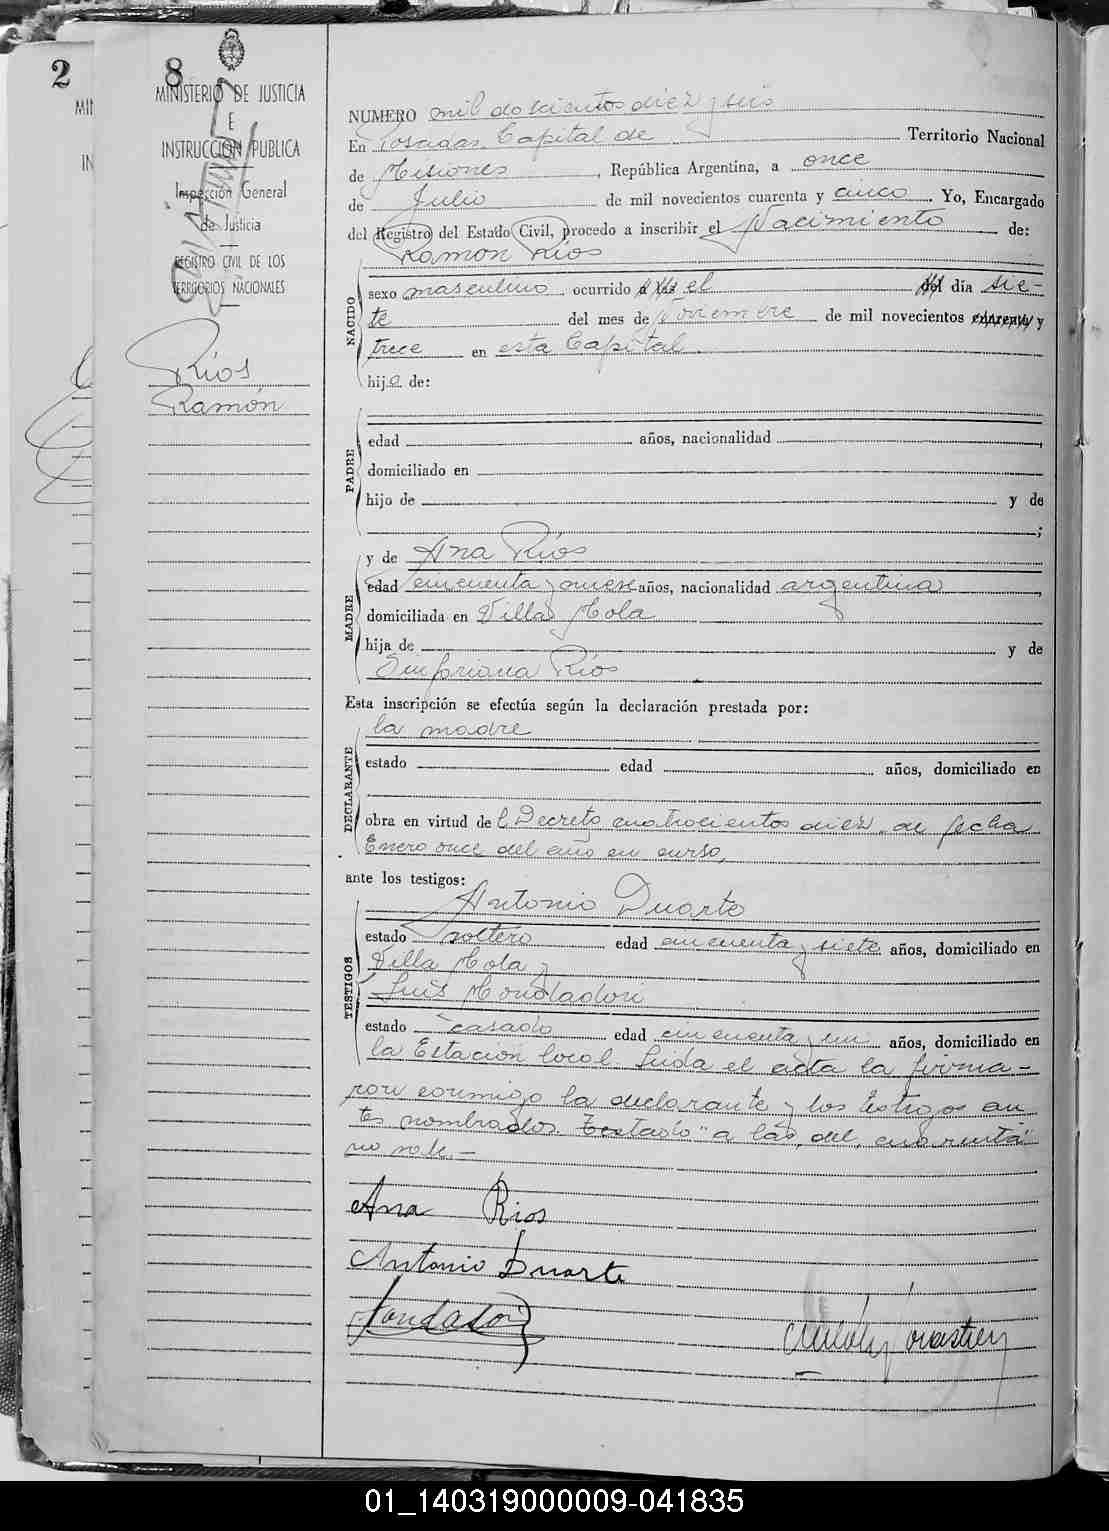 2
MIN
IN
8
MINISTERIO DE JUSTICIA
E
INSTRUCCION PUBLICA
Inspección General
de Justicia
REGISTRO CIVIL DE LOS
TERRITORIOS NACIONALES
Ríos
Ramón
NUMERO mil doscientos diez y seis
En Posadas, Capital de Territorio Nacional
de Misiones, República Argentina, a once
de Julio de mil novecientos cuarenta y cinco. Yo, Encargado
del Registro del Estado Civil, procedo a inscribir el Nacimiento de:
Ramon Ríos
NACIDO
sexo masculino ocurrido a las el del día sie-
te del mes de Noviembre de mil novecientos cuarenta y
trece en esta Capital.
hijo de:
PADRE
edad años, nacionalidad
domiciliado en
hijo de y de
;
MADRE
y de Ana Ríos
edad cincuenta y nueve años, nacionalidad argentina,
domiciliada en Villa Mola
hija de y de
Sinforiana Ríos
Esta inscripción se efectúa según la declaración prestada por:
la madre
DECLARANTE
estado edad años, domiciliado en
obra en virtud del Decreto cuatrocientos diez de fecha
Enero once del año en curso,
ante los testigos:
TESTIGOS
Antonio Duarte
estado soltero edad cincuenta y siete años, domiciliado en
Villa Mola y
Luis Mondadori
estado casado edad cincuenta y un años, domiciliado en
la Estación local. Leida el acta la firma-
ron conmigo la declarante y los testigos an
tes nombrados. Testado "a las, del, cuarenta"
no vale.-
Ana Rios
Antonio Duarte
Mondadori
01_140319000009-041835